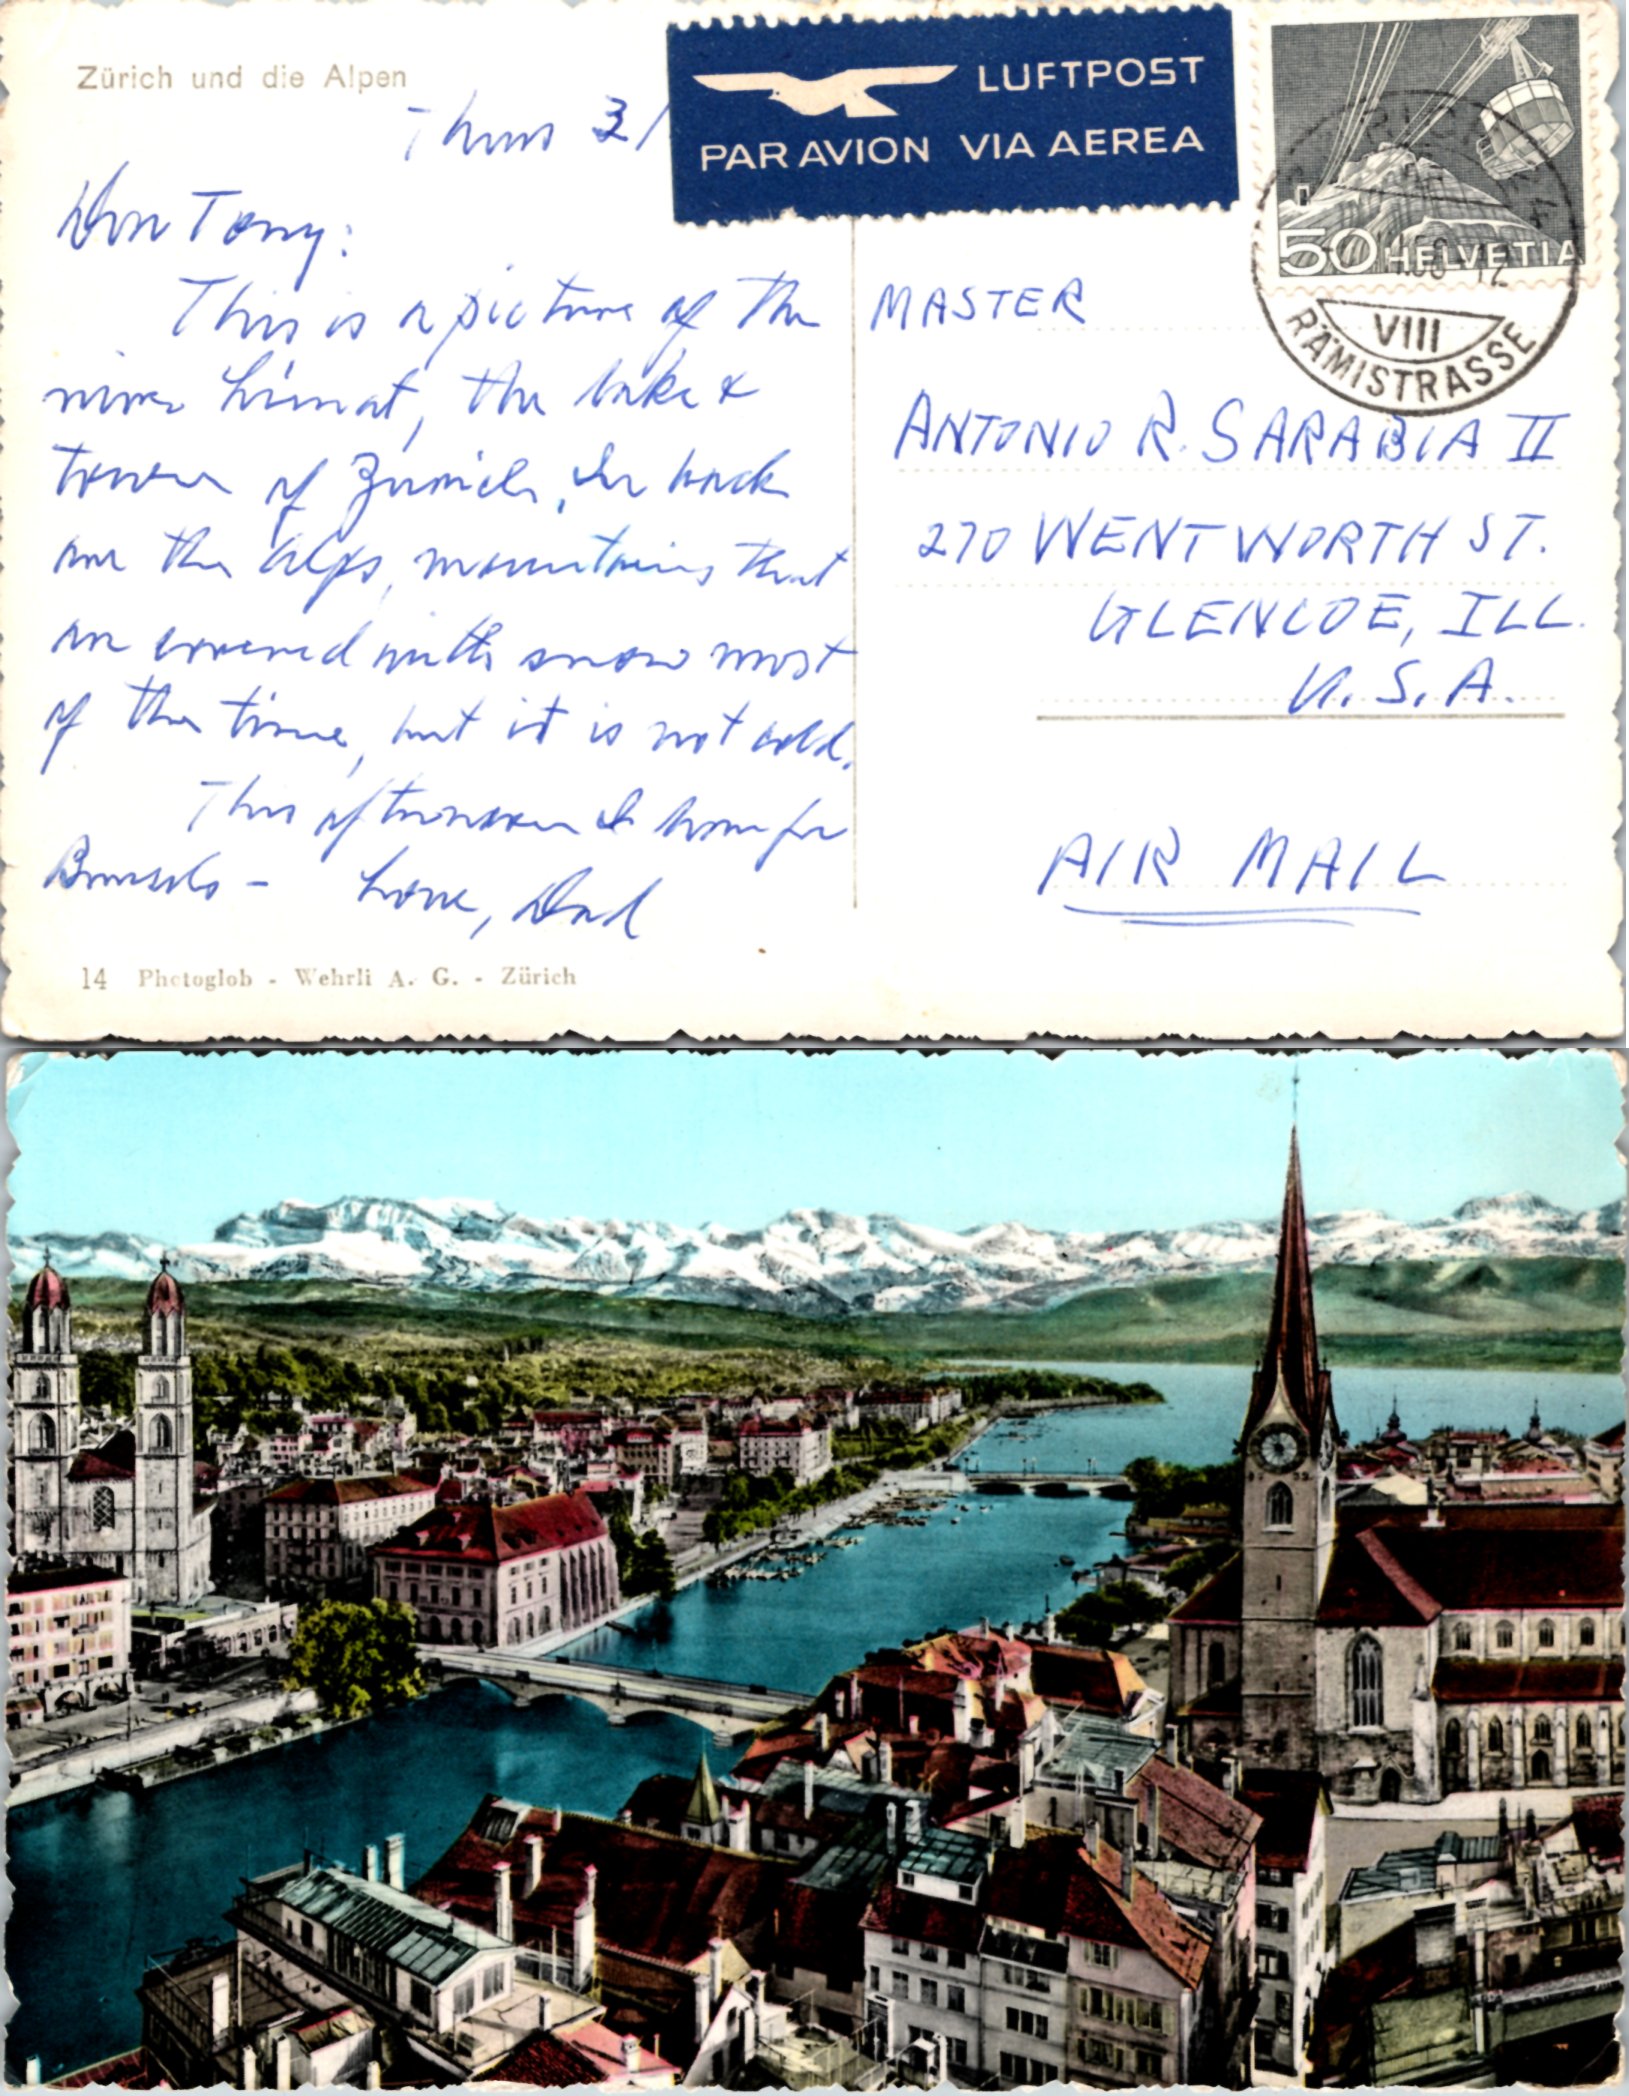 Zürich und die Alpen
LUFTPOST
PAR AVION VIA AEREA
50 HELVETIA
VIII
RÄMISTRASSE
Thurs 31
Dear Tony:
This is a picture of the
river Limat, the lake &
town of Zurich. In back
are the alps, mountains that
are covered with snow most
of the time, but it is not cold.
This afternoon I leave for
Brussels - Love, Dad
MASTER
ANTONIO R. SARABIA II
270 WENTWORTH ST.
GLENCOE, ILL.
U.S.A.
AIR MAIL
14 Photoglob - Wehrli A. G. - Zürich